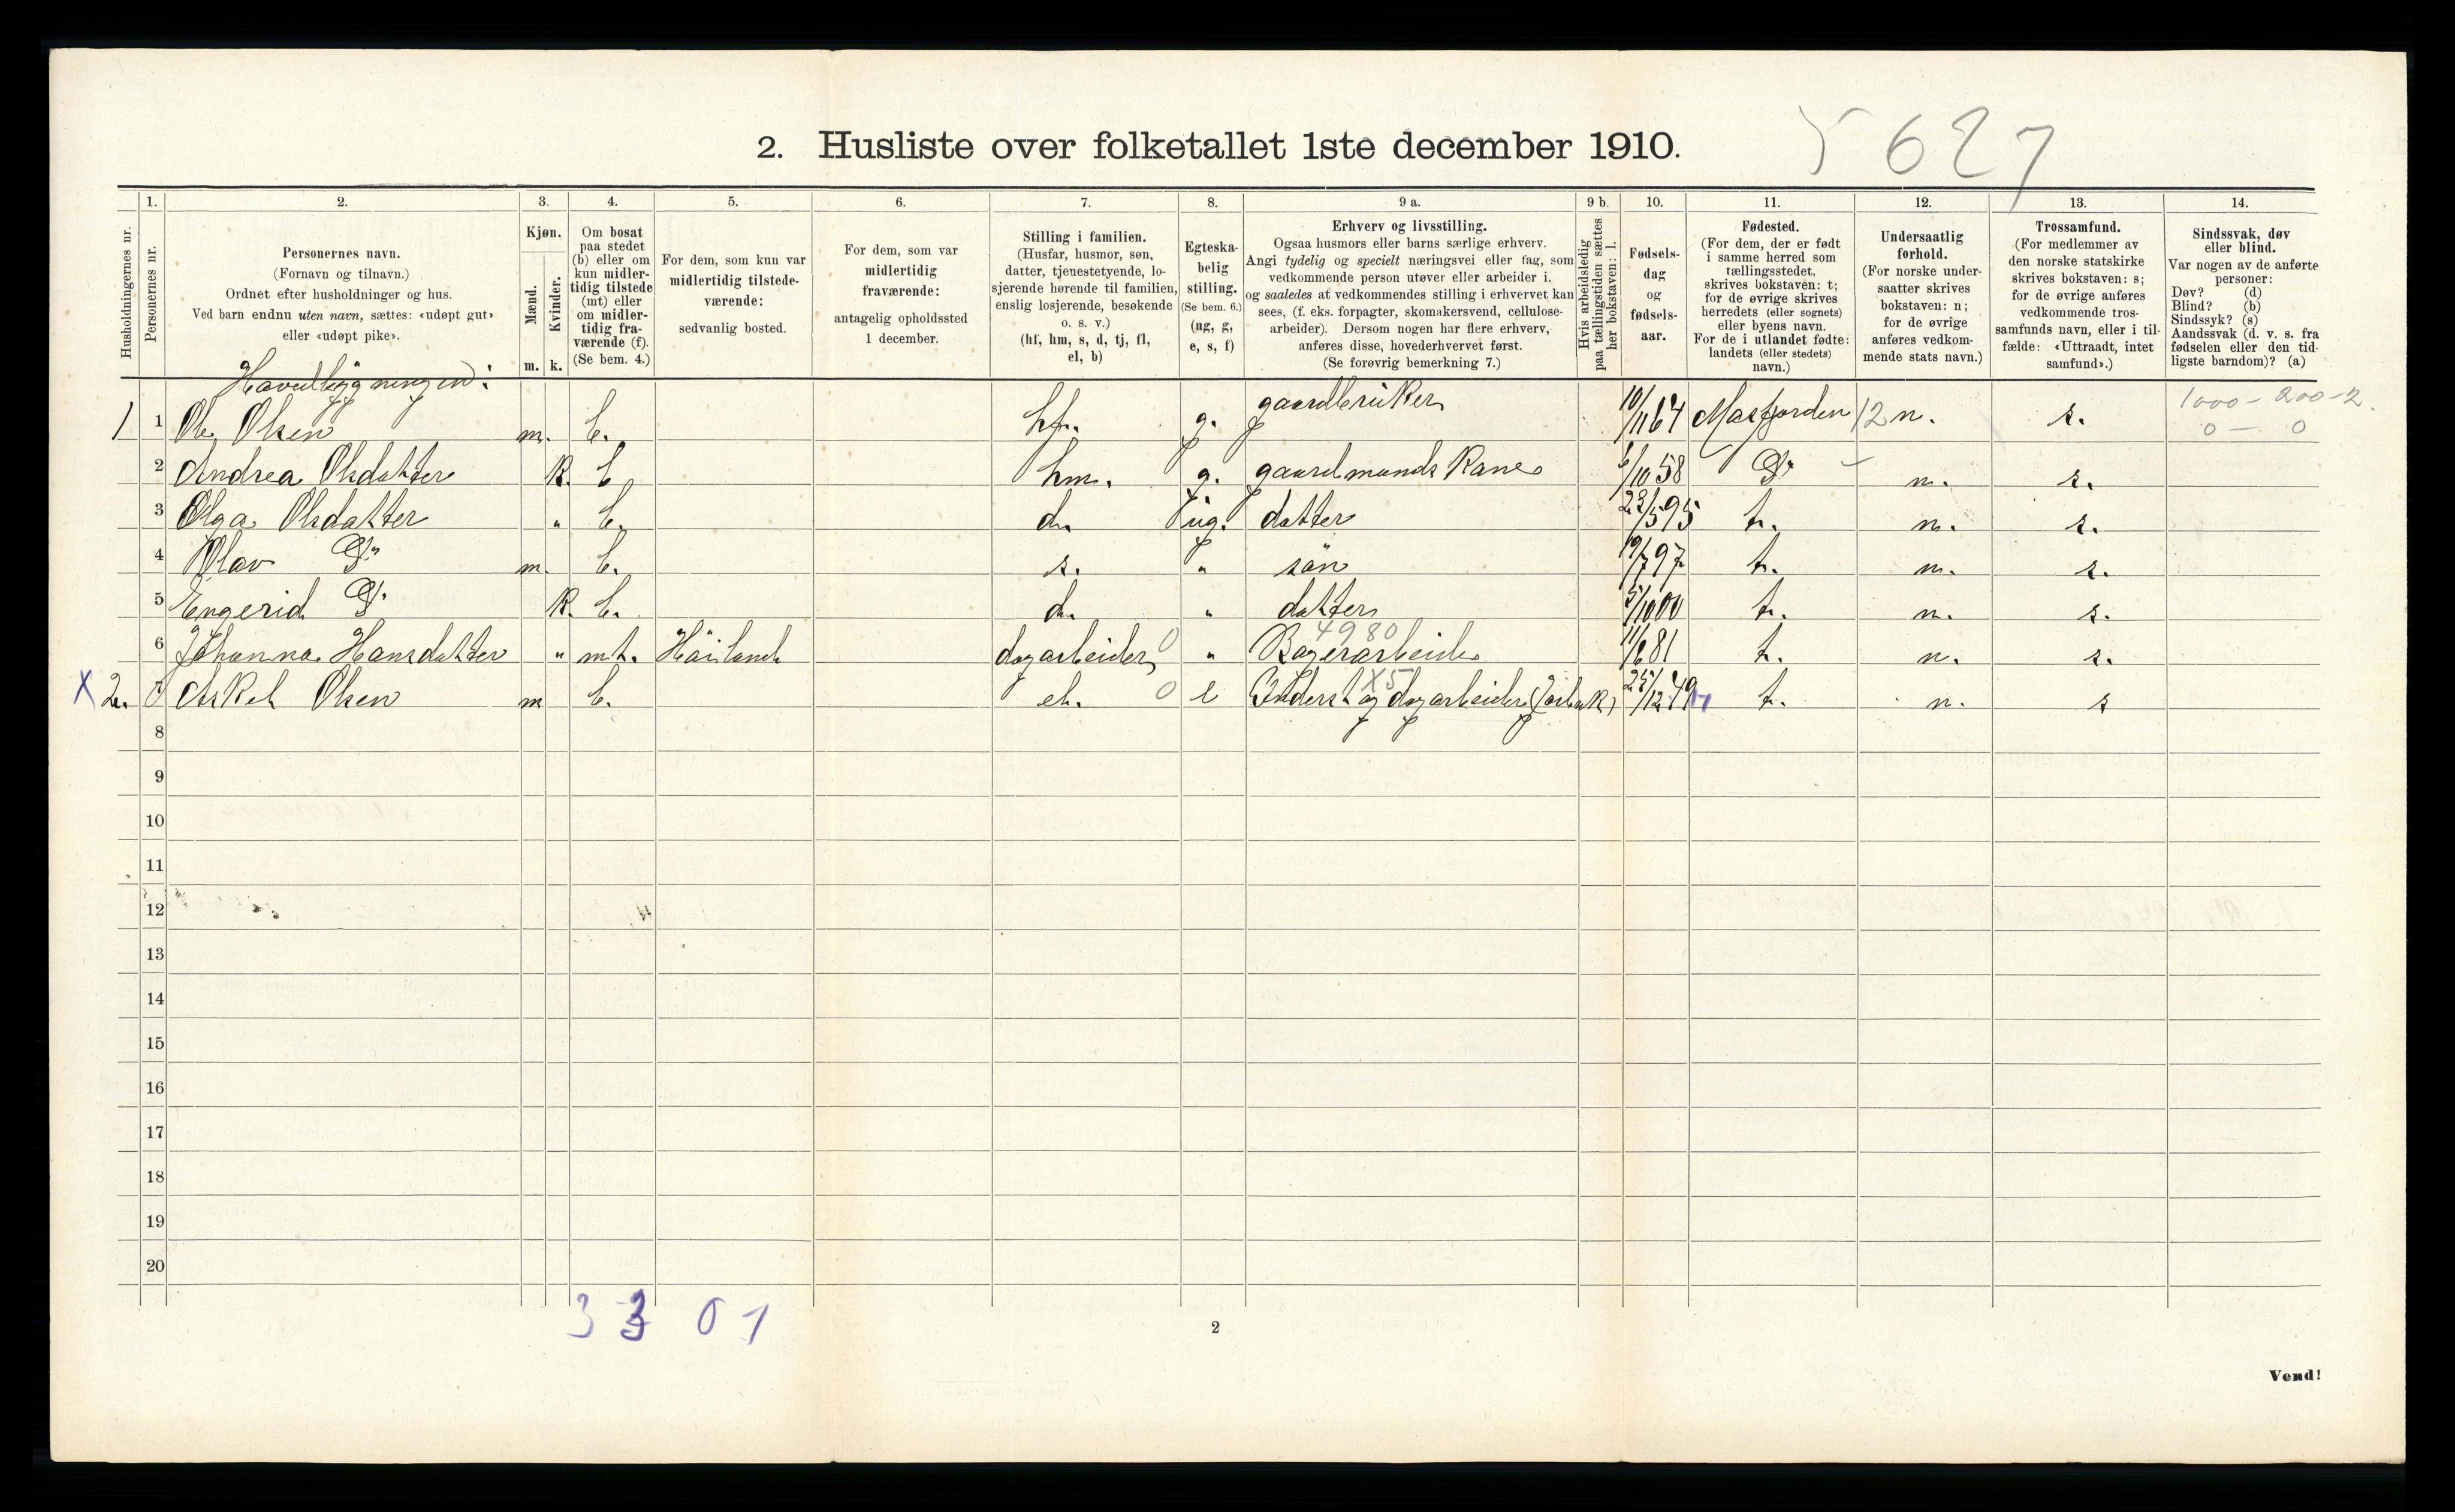 2. Husliste over folketallet 1ste december 1910.
5627
1. 2. 3. 4. 5. 6. 7. 8. 9 a. 9 b. 10. 11. 12. 13. 14.
Husholdningernes nr.
Personernes nr.
Personernes navn.
(Fornavn og tilnavn.)
Ordnet efter husholdninger og hus.
Ved barn endnu uten navn, sættes: «udøpt gut»
eller «udøpt pike».
Kjøn.
Mænd.
Kvinder.
m. k.
Om bosat
paa stedet
(b) eller om
kun midler-
tidig tilstede
(mt) eller
om midler-
tidig fra-
værende (f).
(Se bem. 4.)
For dem, som kun var
midlertidig tilstede-
værende:
sedvanlig bosted.
For dem, som var
midlertidig
fraværende:
antagelig opholdssted
1 december.
Stilling i familien.
(Husfar, husmor, søn,
datter, tjenestetyende, lo-
sjerende hørende til familien,
enslig losjerende, besøkende
o. s. v.)
(hf, hm, s, d, tj, fl,
el, b)
Egteska-
belig
stilling.
(Se bem. 6.)
(ug, g,
e, s, f)
Erhverv og livsstilling.
Ogsaa husmors eller barns særlige erhverv.
Angi tydelig og specielt næringsvei eller fag, som
vedkommende person utøver eller arbeider i,
og saaledes at vedkommendes stilling i erhvervet kan
sees, (f. eks. forpagter, skomakersvend, cellulose-
arbeider). Dersom nogen har flere erhverv,
anføres disse, hovederhvervet først.
(Se forøvrig bemerkning 7.)
Hvis arbeidsledig
paa tællingstiden sættes
her bokstaven: l.
Fødsels-
dag
og
fødsels-
aar.
Fødested.
(For dem, der er født
i samme herred som
tællingsstedet,
skrives bokstaven: t;
for de øvrige skrives
herredets (eller sognets)
eller byens navn.
For de i utlandet fødte:
landets (eller stedets)
navn.)
Undersaatlig
forhold.
(For norske under-
saatter skrives
bokstaven: n;
for de øvrige
anføres vedkom-
mende stats navn.)
Trossamfund.
(For medlemmer av
den norske statskirke
skrives bokstaven: s;
for de øvrige anføres
vedkommende tros-
samfunds navn, eller i til-
fælde: «Uttraadt, intet
samfund».)
Sindssvak, døv
eller blind.
Var nogen av de anførte
personer:
Døv? (d)
Blind? (b)
Sindssyk? (s)
Aandssvak (d. v. s. fra
fødselen eller den tid-
ligste barndom)? (a)
Havudbygningen:
1 1 Ole Olsen m. b. hf. g. gaardbruker 10/11 64 Masfjorden 12 n. s. 1000 - 200 - 2.
0 - 0
2 Andrea Olsdatter k. b. hm. g. gaardmands kane 6/10 58 Do n. s.
3 Olga Olsdatter " b. d. ug. datter 23/5 95 t. n. s.
4 Olav Do m. b. s. " sön 19/7 97 t. n. s.
5 Engerid Do k. b. d. " datter 5/10 00 t. n. s.
4980
6 Johanna Hansdatter " mt. Häiland dagarbeider 0 " 11/6 81 t. n. s.
X5
X 2. 7 Askel Olsen m b. el. 0 e Inderst og dagarbeider (jorbruk) 25/12 49 t. n. s
8
9
10
11
12
13
14
15
16
17
18
19
20
3 3 0 1
2
Vend!